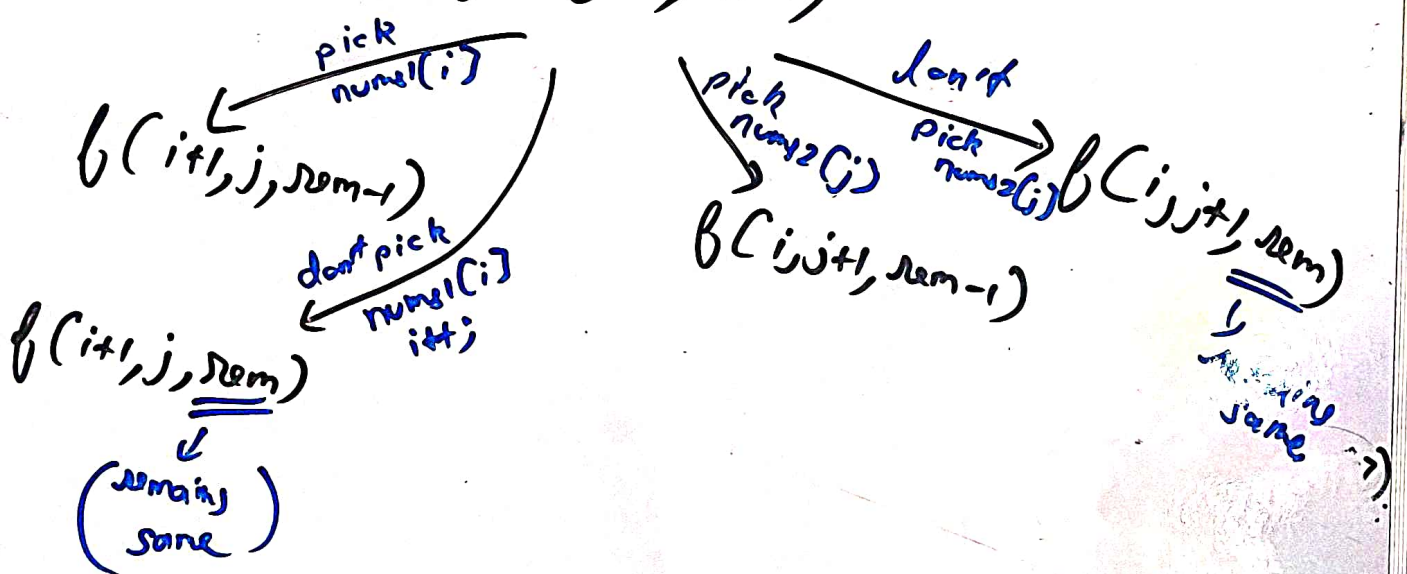 pick
nums1(i)
f(i+1, j, rem-1)
don't pick
nums1(i)
i++;
f(i+1, j, rem)
(remains
same)
pick
nums2(j)
f(i, j+1, rem-1)
don't
pick
nums2(j)
f(i, j+1, rem)
same